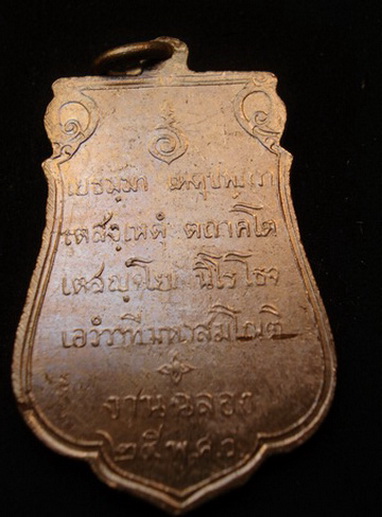 เยธมฺมา เหตุปฺปภวา
เตสํ เหตุํ ตถาคโต
เตสญฺจโย นิโรโธจ
เอวํวาที มหาสมโณติ
งานฉลอง
๒๕ พ.ศ.ว.